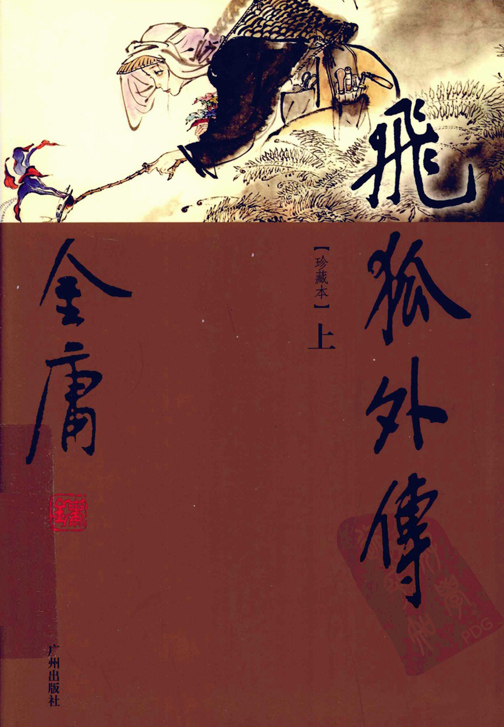 飛狐外傳
【珍藏本】
上
金庸
广州出版社
PDG